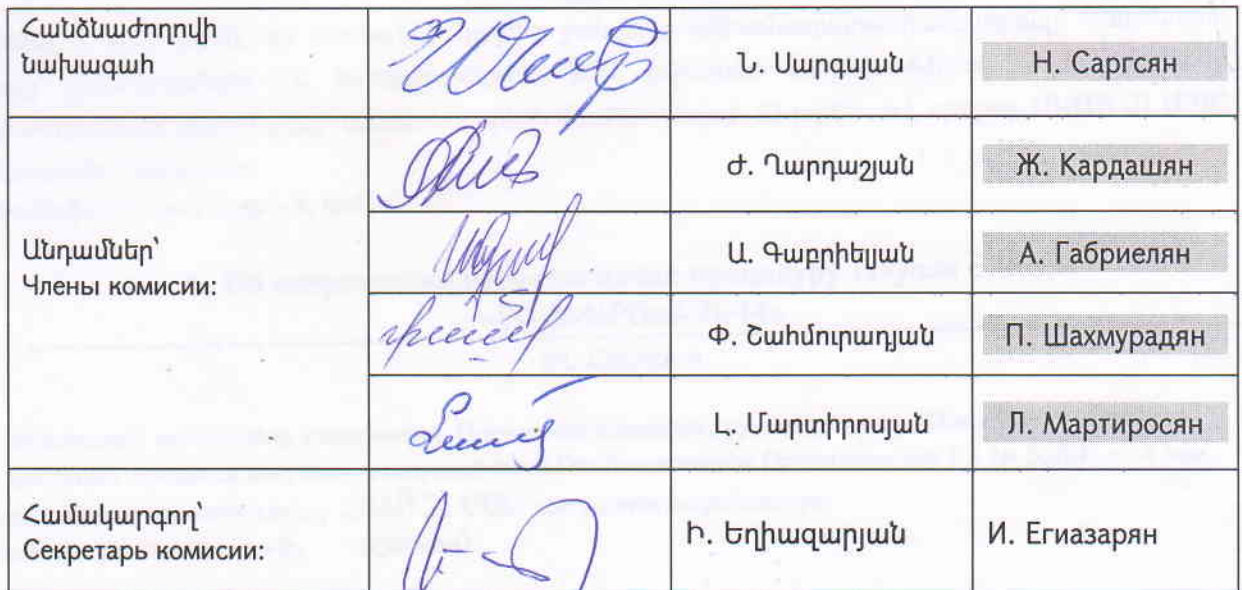 Հանձնաժողովի
նախագահ
Ն. Սարգսյան
Н. Саргсян
Ժ. Ղարդաշյան
Ж. Кардашян
Անդամներ՝
Члены комисии:
Ա. Գաբրիելյան
А. Габриелян
Փ. Շահմուրադյան
П. Шахмурадян
Լ. Մարտիրոսյան
Л. Мартиросян
Համակարգող՝
Секретарь комисии:
Ի. Եղիազարյան
И. Егиазарян